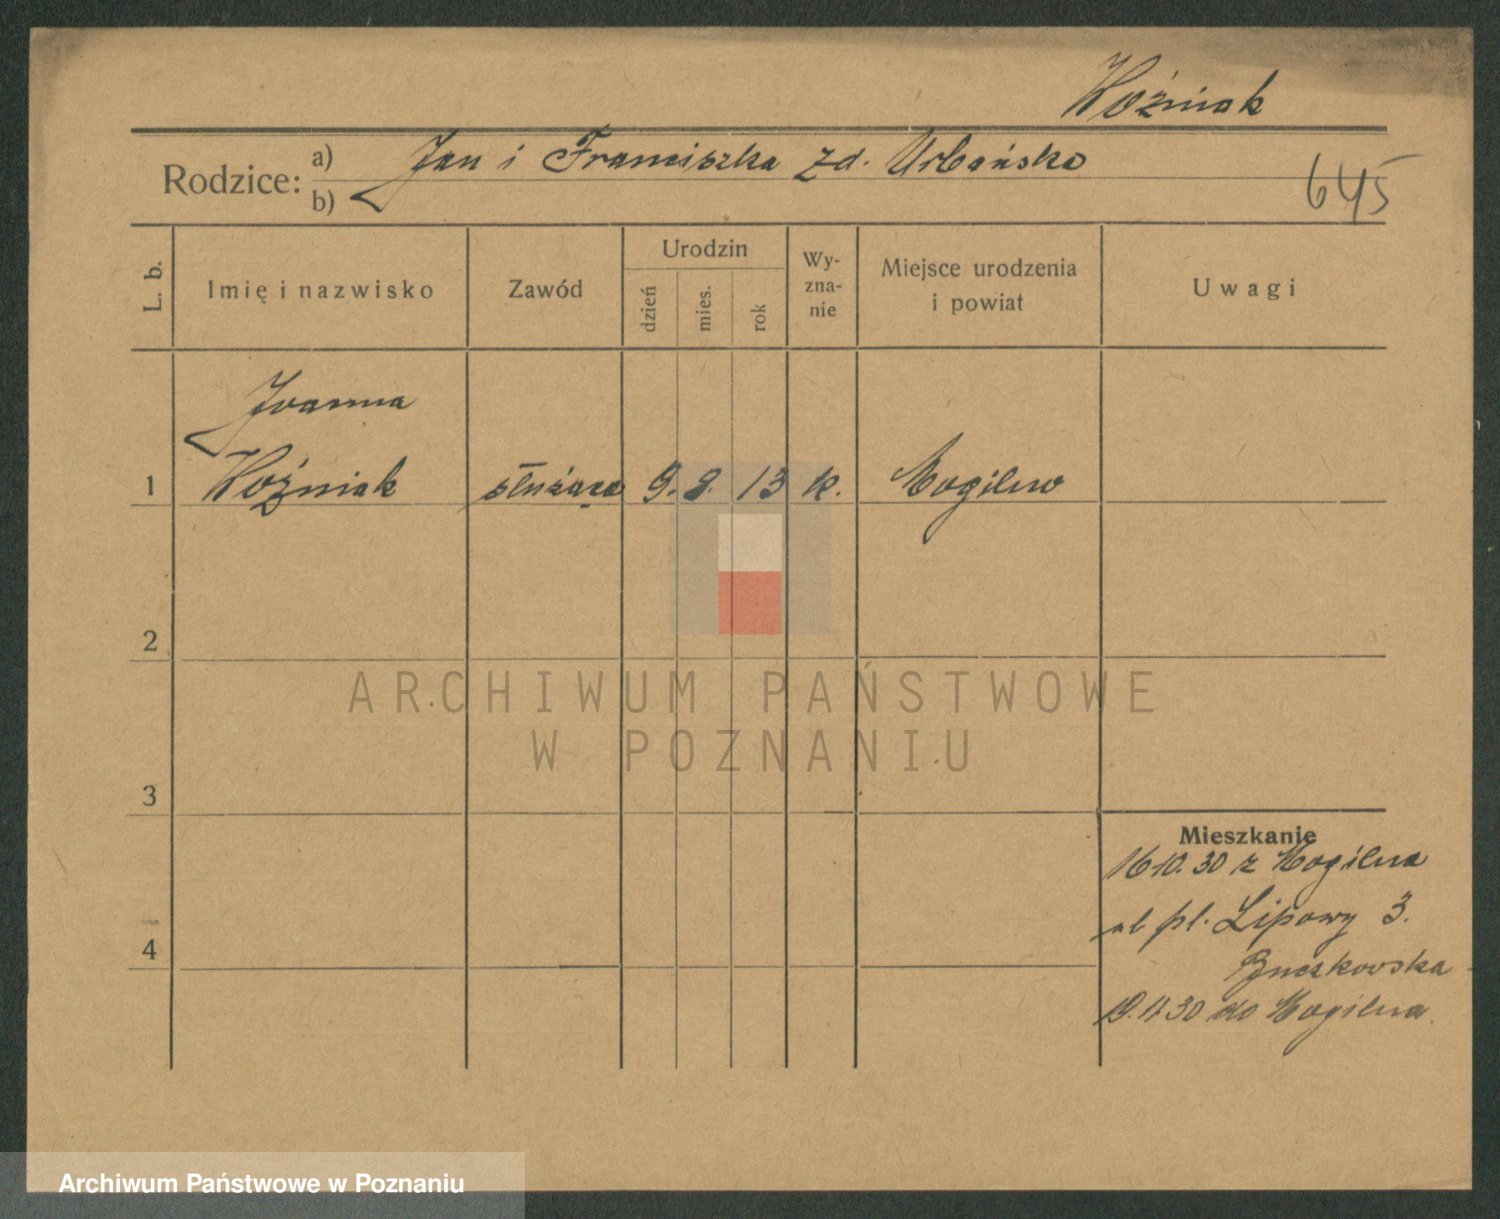 Woźniak
Rodzice: a) Jan i Franciszka zd. Urbańska
b)
645
L. b.
Imię i nazwisko
Zawód
Urodzin
dzień
mies.
rok
Wy-
zna-
nie
Miejsce urodzenia
i powiat
Uwagi
Joanna
1 Woźniak służąca 9. 8. 13 k. Mogilno
2
ARCHIWUM PAŃSTWOWE
W POZNANIU
3
Mieszkanie
16.10.30 z Mogilna
pl. Lipowy 3.
4
do Mogilna.
Archiwum Państwowe w Poznaniu